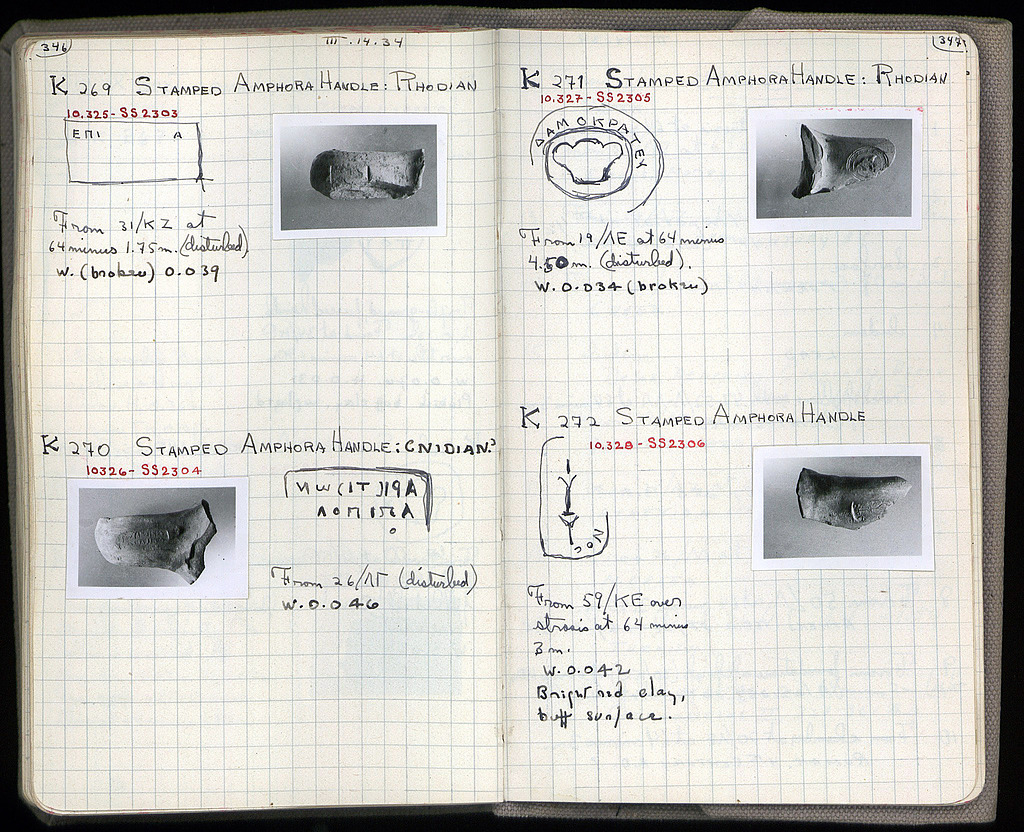 346
III-14.34
K 269 STAMPED AMPHORA HANDLE: RHODIAN
10.325- SS2303
ΕΠΙ Α
From 31/KZ at
64 minus 1.75m. (disturbed)
W. (broken) 0.039
K 270 STAMPED AMPHORA HANDLE: CNIDIAN?
10326- SS2304
ΛΟΠΙΠΑ
From 26/ΛΓ (disturbed)
W. 0.046
347
K 271 STAMPED AMPHORA HANDLE: RHODIAN
10.327- SS2305
ΔΑΜΟΚΡΑΤΕΥ
From 19/ΛΕ at 64 minus
4.50 m. (disturbed).
W. 0.034 (broken)
K 272 STAMPED AMPHORA HANDLE
10.328- SS2306
From 59/KE over
strosis at 64 minus
3 m.
W. 0.042
Bright red clay,
buff surface.